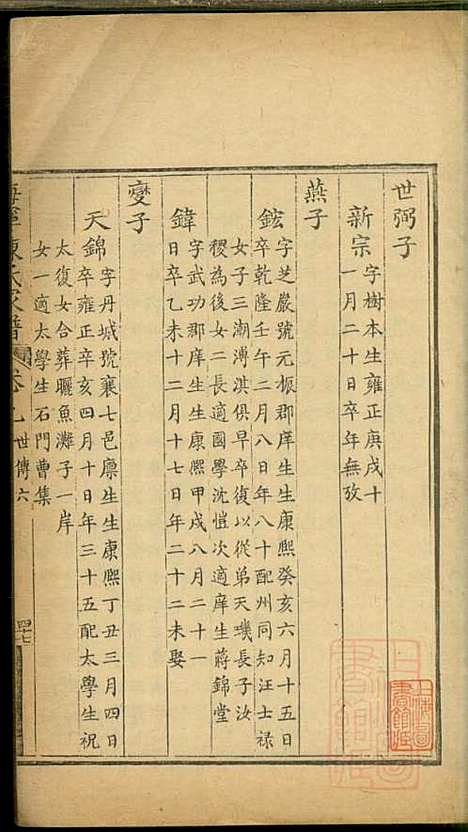 世弼子
新宗
字樹本生雍正庚戌十
一月二十日卒年無攷
燕子
鉉
字芝巖號元振郡庠生生康熙癸亥六月十五日
卒乾隆壬午二月八日年八十配州同知汪士祿
女子三潮溥淇俱早卒復以從弟天璣長子汝
稷為後女二長適國學沈愷次適庠生蔣錦堂
鍏
字武功郡庠生生康熙甲戌八月二十一
日卒乙未十二月十七日年二十二未娶
燮子
天錦
字丹城號襄七邑廪生生康熙丁丑三月四日
卒雍正辛亥四月十日年三十五配太學生祝
太復女合葬曬魚灘子一岸
女一適太學生石門曹集
海寧陳氏家譜
卷九
世傳六
四十七